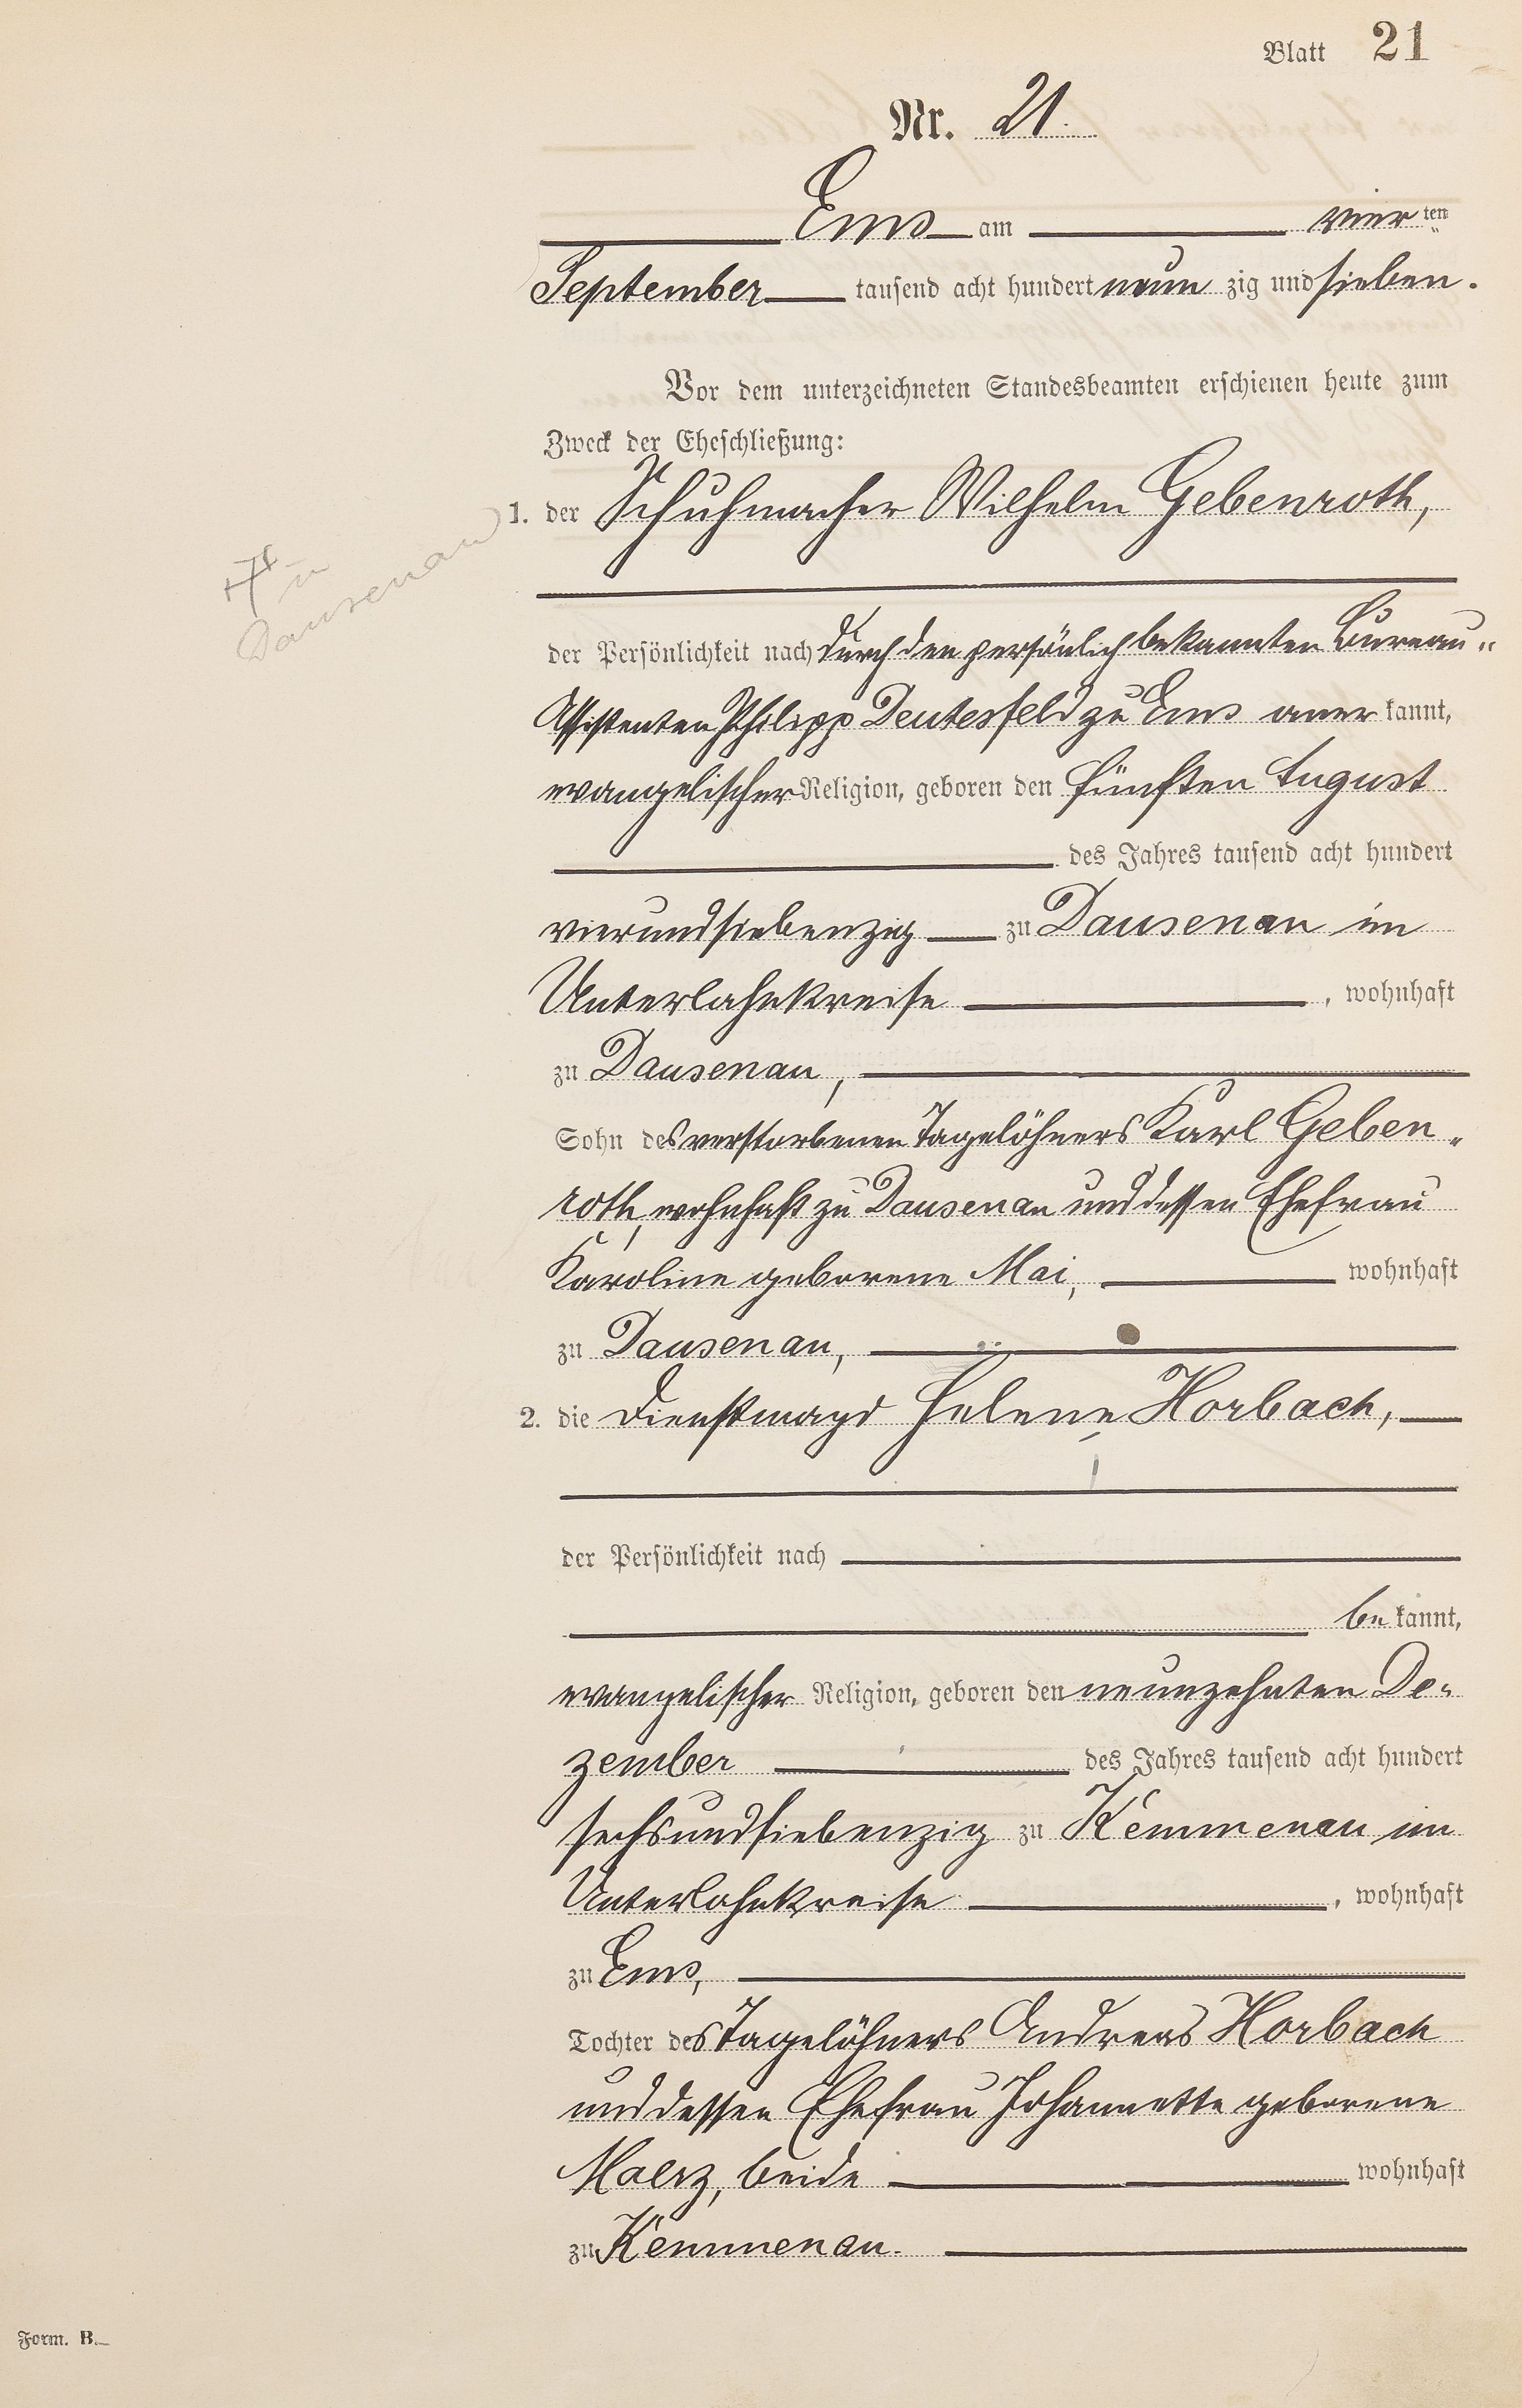 Blatt 21
Nr. 21.
Ems am vierten
September tausend acht hundert neun zig und sieben.
Vor dem unterzeichneten Standesbeamten erschienen heute zum
Zweck der Eheschließung:
1. der Schuhmacher Wilhelm Gebenroth,
in
Dausenau
der Persönlichkeit nach durch den persönlich bekannten Bureau-
Assistenten Philipp Deutesfeld zu Ems aner kannt,
evangelischer Religion, geboren den fünften August
des Jahres tausend acht hundert
vierundsiebenzig zu Dausenau im
Unterlahnkreise, wohnhaft
zu Dausenau,
Sohn des verstorbenen Tagelöhners Karl Geben-
roth, wohnhaft zu Dausenau und dessen Ehefrau
Karoline geborene Mai, wohnhaft
zu Dausenau,
2. die Dienstmagd Helene Horbach,
der Persönlichkeit nach
be kannt,
evangelischer Religion, geboren den neunzehnten De-
zember des Jahres tausend acht hundert
sechsundsiebenzig zu Kemmenau im
Unterlahnkreise, wohnhaft
zu Ems,
Tochter des Tagelöhners Andreas Horbach
und dessen Ehefrau Johannette geborene
Maerz, beide wohnhaft
zu Kemmenau.
Form. B.